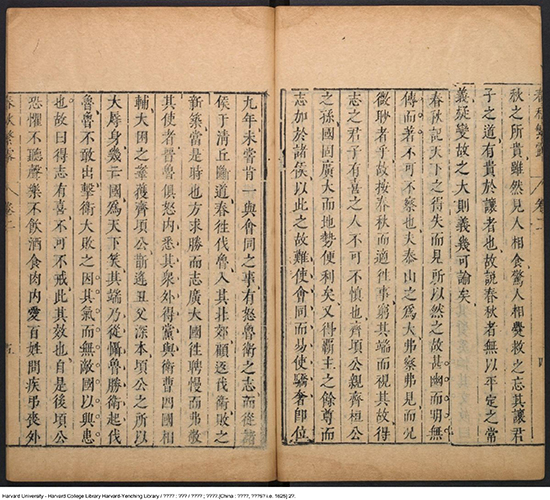 春秋繁露 卷二 四
秋之所貴雖然見人相食驚人相爨救之忘其讓君
子之道有貴於讓者也故說春秋者無以平定之常
義疑變故之大則義幾可諭矣
春秋記天下之得失而見所以然之故甚幽而明無
傳而著不可不察也夫泰山之爲大弗察弗見而況
微眇者乎故按春秋而適往事窮其端而視其故得
志之君子有喜之人不可不慎也齊頃公親齊桓公
之孫國固廣大而地勢便利矣又得霸主之餘尊而
志加於諸侯以此之故難使會同而易使驕奢即位
九年未嘗肯一與會同之事有怒魯衛之志而從諸
侯于清丘斷道春往伐魯入其北郊顧返伐衛敗之
新築當是時也方乘勝而志廣大國往聘慢而弗敬
其使者晉魯俱怒内悉其衆外得黨與衛曹四國相
輔大困之鞌獲齊頃公斮逄丑父深本頃公之所以
大辱身幾亡國爲天下笑其端乃從懾魯勝衛起伐
魯魯不敢出擊衛大敗之因其氣而無敵國以興患
也故曰得志有喜不可不戒此其效也自是後頃公
恐懼不聽聲樂不飲酒食肉内愛百姓問疾弔喪外
春秋繁露 卷二 五
Harvard University - Harvard College Library Harvard-Yenching Library / ????: ??? / ???? ; ????.[China : ????, ????? i.e. 1625] 27.